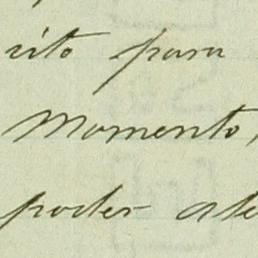 rito para
Momento,
poder ate